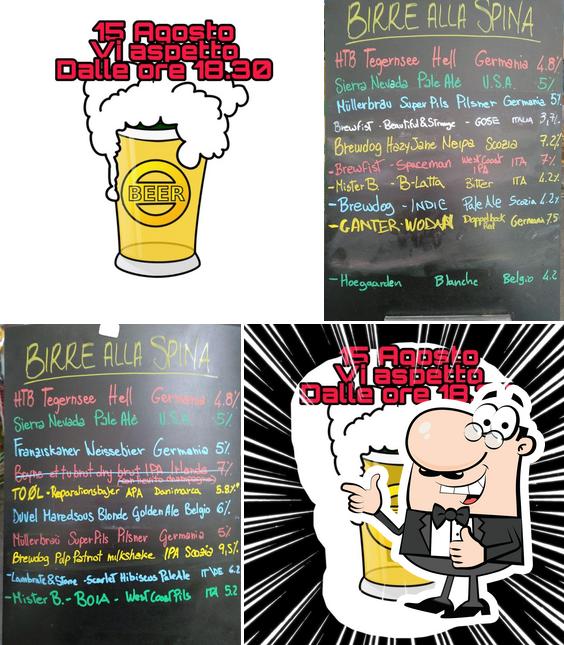 15 Agosto
Vi aspetto
Dalle ore 18.30
BEER
BIRRE ALLA SPINA
HTB Tegernsee Hell Germania 4.8%
Sierra Nevada Pale Ale U.S.A. 5%
Müllerbräu Super Pils Pilsner Germania 5%
Brewfist - Beautiful & Strange - GOSE ITALIA 3,7%
Brewdog Hazy Jane Neipa Scozia 7.2%
- Brewfist - Spaceman West Coast IPA ITA 7%
- Mister B - B-Latta Bitter ITA 4.2%
- Brewdog - INDIE Pale Ale Scozia 4.2%
- GANTER - WODAN Doppelbock Germania 7.5
- Hoegaarden Blanche Belgio 4.2
BIRRE ALLA SPINA
HTB Tegernsee Hell Germania 4.8%
Sierra Nevada Pale Ale U.S.A. 5%
Franziskaner Weissebier Germania 5%
brut IPA Irlanda 7%
TO ØL - Reparationsbajer APA Danimarca 5.8%
Duvel Maredsous Blonde Golden Ale Belgio 6%
Müllerbräu Super Pils Pilsner Germania 5%
Brewdog Pulp Patriot milkshake IPA Scozia 9,5%
- Lambrate & Stone - Scarlet Hibiscus Pale Ale IT\DE 6.2
- Mister B. - BOIA - West Coast Pils ITA 5.2
15 Agosto
Vi aspetto
Dalle ore 18